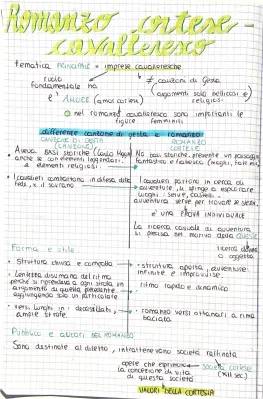 Romanzo cortese-
cavalleresco
tematica PRINCIPALE = imprese cavalleresche
ruolo
fondamentale ha
≠ canzoni di Gesta
(argomenti solo bellicosi e
religiosi.
è AMORE (amor cortese)
nel romanzo cavalleresco sono importanti le
figure femminili
differenze canzone di gesta e romanzo
CANZONE DI GESTA
ROMANZO
CORTESE
Aveva BASI storiche (Carlo Magno)
anche se con elementi leggendari.
e elementi religiosi.
No basi storiche, presente un paesaggio
fantastico e fiabesco
I cavalieri combattono in difesa della
fede, x il sovrano
I cavalieri partono in cerca di
avventure, si spinge a esplorare
luoghi: selve, castelli..
avventura serve per trovare se stessi.
è una PROVA INDIVIDUALE
La ricerca casuale di avventura
si precisa nel motivo della queste
ricerca di
o oggetto.
Forma e stile
Struttura chiusa e compatta
struttura aperta, avventure
infinite e imprevedibili.
Lentezza disumana del ritmo
perché si riprendeva a ogni strofa un
argomento di quella precedente
aggiungendo solo un particolare
ritmo rapido e dinamico
versi lunghi e decasillabi,
ampie strofe.
romanzo versi ottonari a rima
baciata.
Pubblico e autori DEL ROMANZO
Sono destinate al diletto, intrattenevano società raffinata
opere che esprimono
la concezione di vita
di questa società
società cortese
(XII sec.)
VALORI DELLA CORTESIA